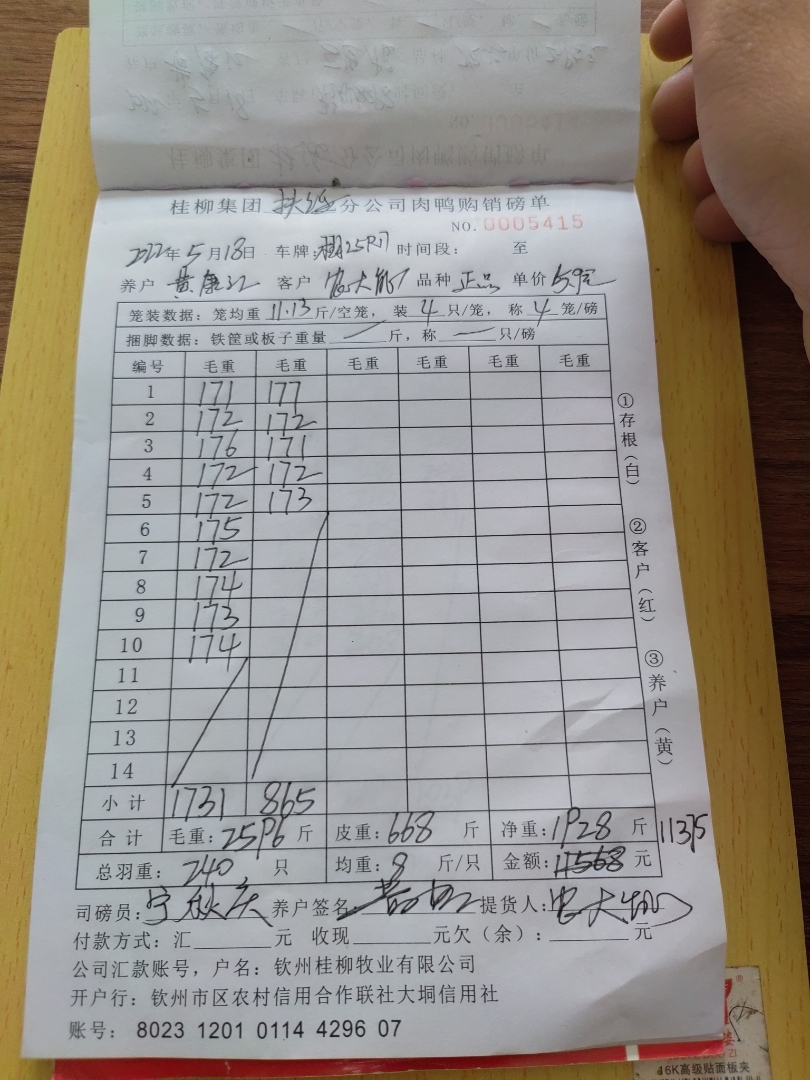 桂柳集团 扶绥 分公司肉鸭购销磅单
NO. 0005415
2022年 5 月 18日 车牌: 时间段: 至
养户 黄康 客户 农大 品种 正品 单价
笼装数据: 笼均重 11.13 斤/空笼, 装 4 只/笼, 称 4 笼/磅
捆脚数据: 铁筐或板子重量 — 斤, 称 — 只/磅
编号 毛重 毛重 毛重 毛重 毛重 毛重
1 171 177
2 172 172
3 176 171
4 172 172
5 172 173
6 175
7 172
8 174
9 173
10 174
11
12
13
14
小计 1731 865
合计 毛重: 2596 斤 皮重: 668 斤 净重: 1928 斤 11375
总羽重: 240 只 均重: 8 斤/只 金额: 11568 元
司磅员: 养户签名: 提货人: 农大
付款方式: 汇 元 收现 元欠(余): 元
公司汇款账号, 户名: 钦州桂柳牧业有限公司
开户行: 钦州市区农村信用合作联社大垌信用社
账号: 8023 1201 0114 4296 07
①存根(白)
②客户(红)
③养户(黄)
16K高级贴面板夹